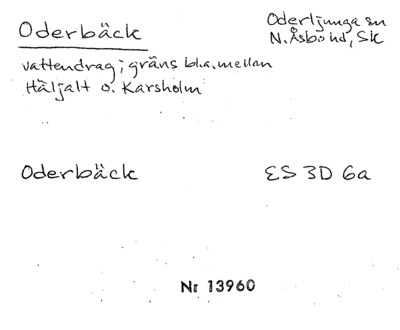 Oderbäck
Oderljunga sn
N. Åsbo hd, Sk
vattendrag; gräns bl.a. mellan
Häljalt o. Karsholm
Oderbäck
ES 3D 6a
Nr 13960